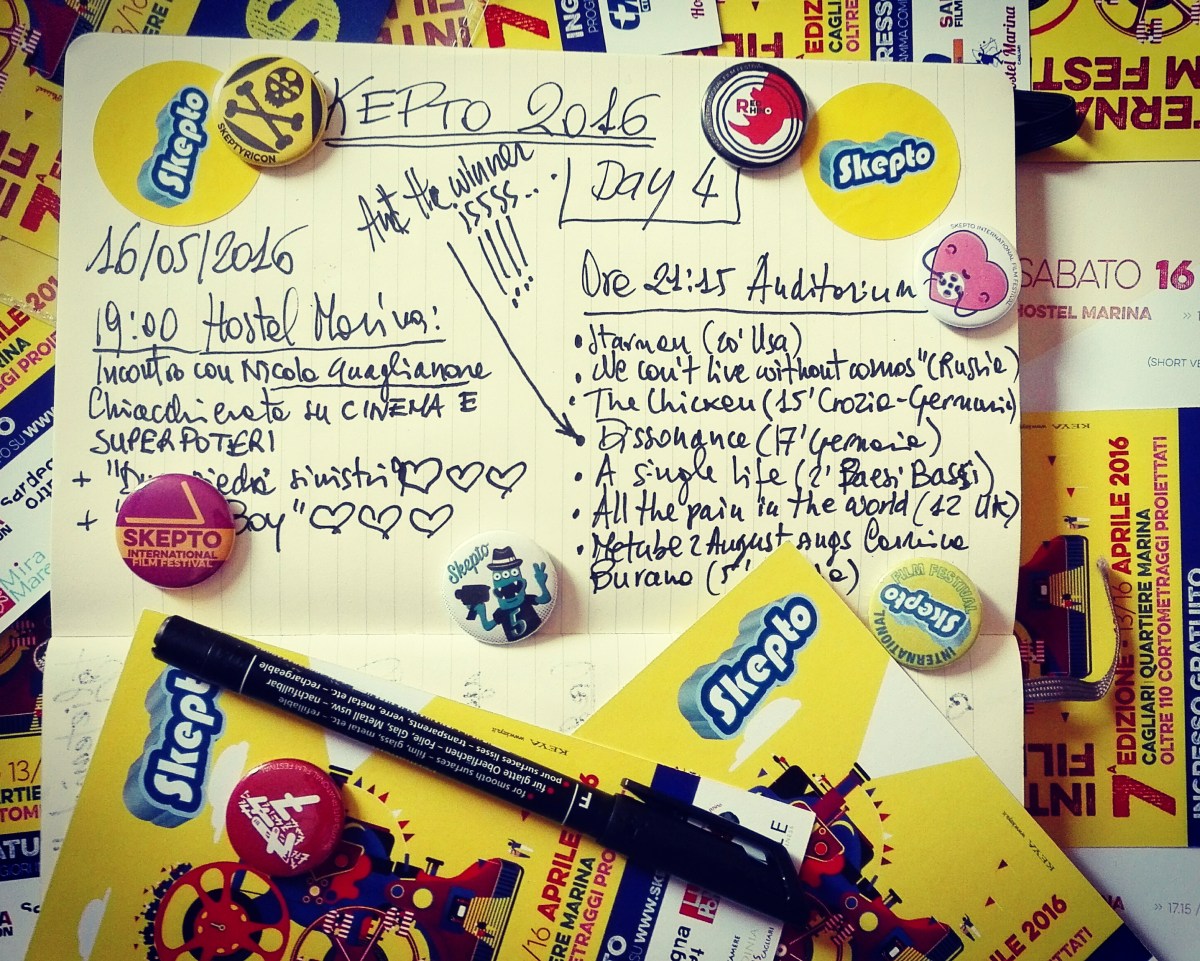 SKEPTO 2016
And the winner
issss...
!!!!
Day 4
16/05/2016
19:00 Hostel Marina:
Incontro con Nicola Guaglianone
Chiacchierata su CINEMA E
SUPERPOTERI
+ piedi sinistri" ♡♡♡
+ Boy" ♡♡♡
Ore 21:15 Auditorium
• Starmen (20' Usa)
• We can't live without cosmos" (Russia)
• The Chicken (15' Crozia-Germania)
• Dissonance (17' Germania)
• A single life (2' Paesi Bassi)
• All the pain in the world (12 UK)
• Metube 2 August sings Carmina
Burana (5'
Skepto
SKEPTYRICON
RED RHINO
Skepto
SKEPTO INTERNATIONAL FILM FESTIVAL
SKEPTO
INTERNATIONAL
FILM FESTIVAL
Skepto
5
FILM FESTIVAL
Skepto
INTERNATIONAL
SABATO 16
HOSTEL MARINA
(SHORT VE
7ª EDIZIONE - 13/16 APRILE 2016
CAGLIARI QUARTIERE MARINA
OLTRE 110 CORTOMETRAGGI PROIETTATI
INGRESSO GRATUITO
Skepto
Skepto
for smooth surfaces – film, glass, metal etc. – refillable
für glatte Oberflächen – Folie, Glas, Metall usw. nachfüllbar
pour surfaces lisses – transparents, verre, métal etc. – rechargeable
F
KEYA
/16 APRILE 2016
IERE MARINA
OMETRAGGI PRO
KEYA
» 17.15